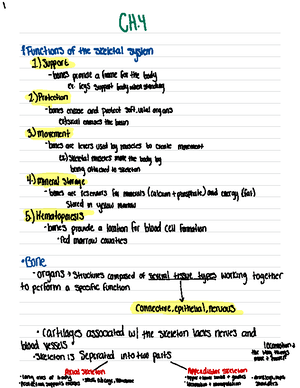 CH.4
Functions of the Skeletal System
1.) Support
- bones provide a frame for the body
ex: legs support body when standing
2.) Protection
- bones encase and protect soft, vital organs
ex) skull encases the brain
3.) Movement
- bones are levers used by muscles to create movement
ex) Skeletal muscles move the body by
being attached to skeleton
4.) Mineral Storage
- bones are reservoirs for minerals (calcium + phosphate) and energy (fat)
Stored in yellow marrow
5.) Hematopoiesis
- bones provide a location for blood cell formation
Red marrow cavities
• Bone
- organs → Structures composed of several tissue types working together
to perform a specific function
Connective, epithelial, nervous
• Cartilages associated w/ the skeleton lacks nerves and
blood vessels
• Skeleton is separated into two parts
Axial Skeleton
Appendicular Skeleton